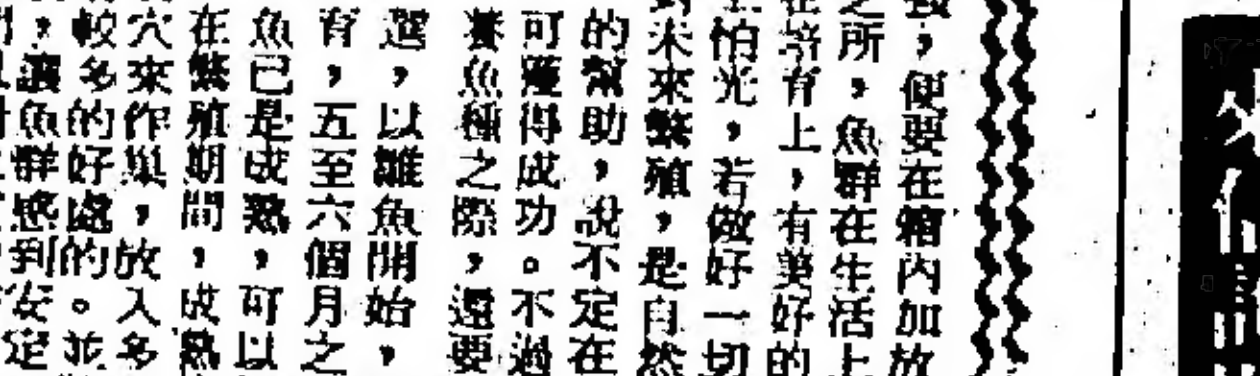 ，便要在箱內加放
之所，魚群在生活上
在培育上，有美好的
怕光，若做好一切
未來繁殖，是自然
的幫助，說不定在
可獲得成功。不過
養魚種之際，還要
選，以雛魚開始，
育，五至六個月之
魚已是成熟，可以
在繁殖期間，成熟
穴來作巢，放入多
較多的好處的。並
，讓魚群感到安定